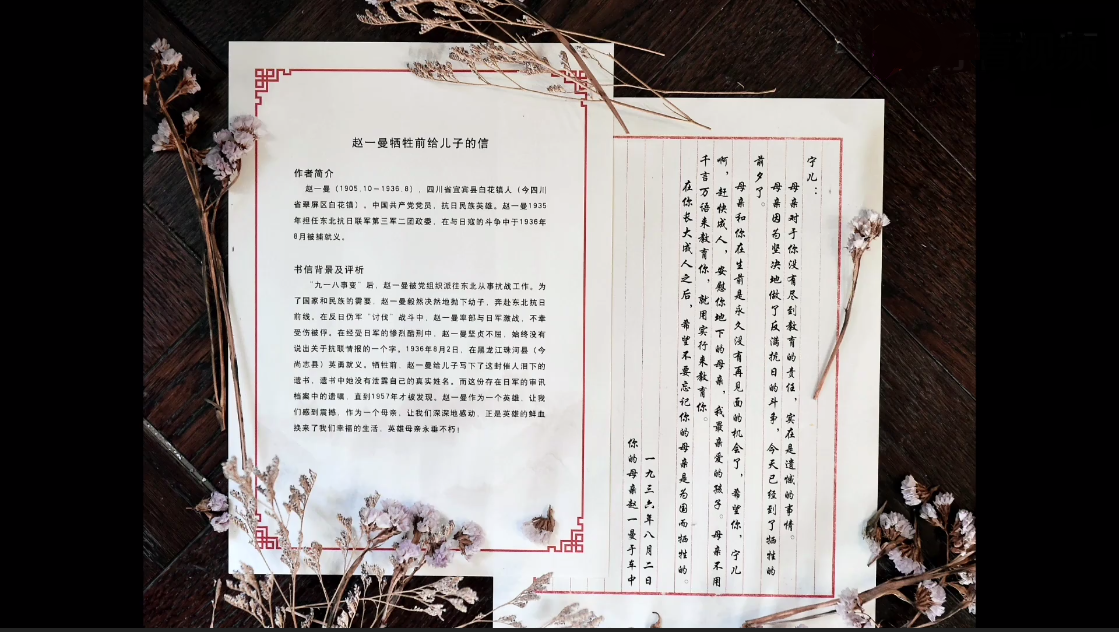 赵一曼牺牲前给儿子的信
作者简介
赵一曼（1905.10－1936.8），四川省宜宾县白花镇人（今四川
省翠屏区白花镇）。中国共产党党员，抗日民族英雄。赵一曼1935
年担任东北抗日联军第三军二团政委，在与日寇的斗争中于1936年
8月被捕就义。
书信背景及评析
“九一八事变”后，赵一曼被党组织派往东北从事抗战工作。为
了国家和民族的需要，赵一曼毅然决然地抛下幼子，奔赴东北抗日
前线。在反日伪军“讨伐”战斗中，赵一曼率部与日军激战，不幸
受伤被俘。在经受日军的惨烈酷刑中，赵一曼坚贞不屈，始终没有
说出关于抗联情报的一个字。1936年8月2日，在黑龙江珠河县（今
尚志县）英勇就义。牺牲前，赵一曼给儿子写下了这封催人泪下的
遗书，遗书中她没有泄露自己的真实姓名。而这份存在日军的审讯
档案中的遗嘱，直到1957年才被发现。赵一曼作为一个英雄，让我
们感到震撼，作为一个母亲，让我们深深地感动，正是英雄的鲜血
换来了我们幸福的生活，英雄母亲永垂不朽！
宁儿：
母亲对于你没有尽到教育的责任，实在是遗憾的事情。
母亲因为坚决地做了反满抗日的斗争，今天已经到了牺牲的
前夕了。
母亲和你在生前是永久没有再见面的机会了，希望你，宁儿
啊，赶快成人，安慰你地下的母亲，我最亲爱的孩子。母亲不用
千言万语来教育你，就用实行来教育你。
在你长大成人之后，希望不要忘记你的母亲是为国而牺牲的。
一九三六年八月二日
你的母亲赵一曼于车中